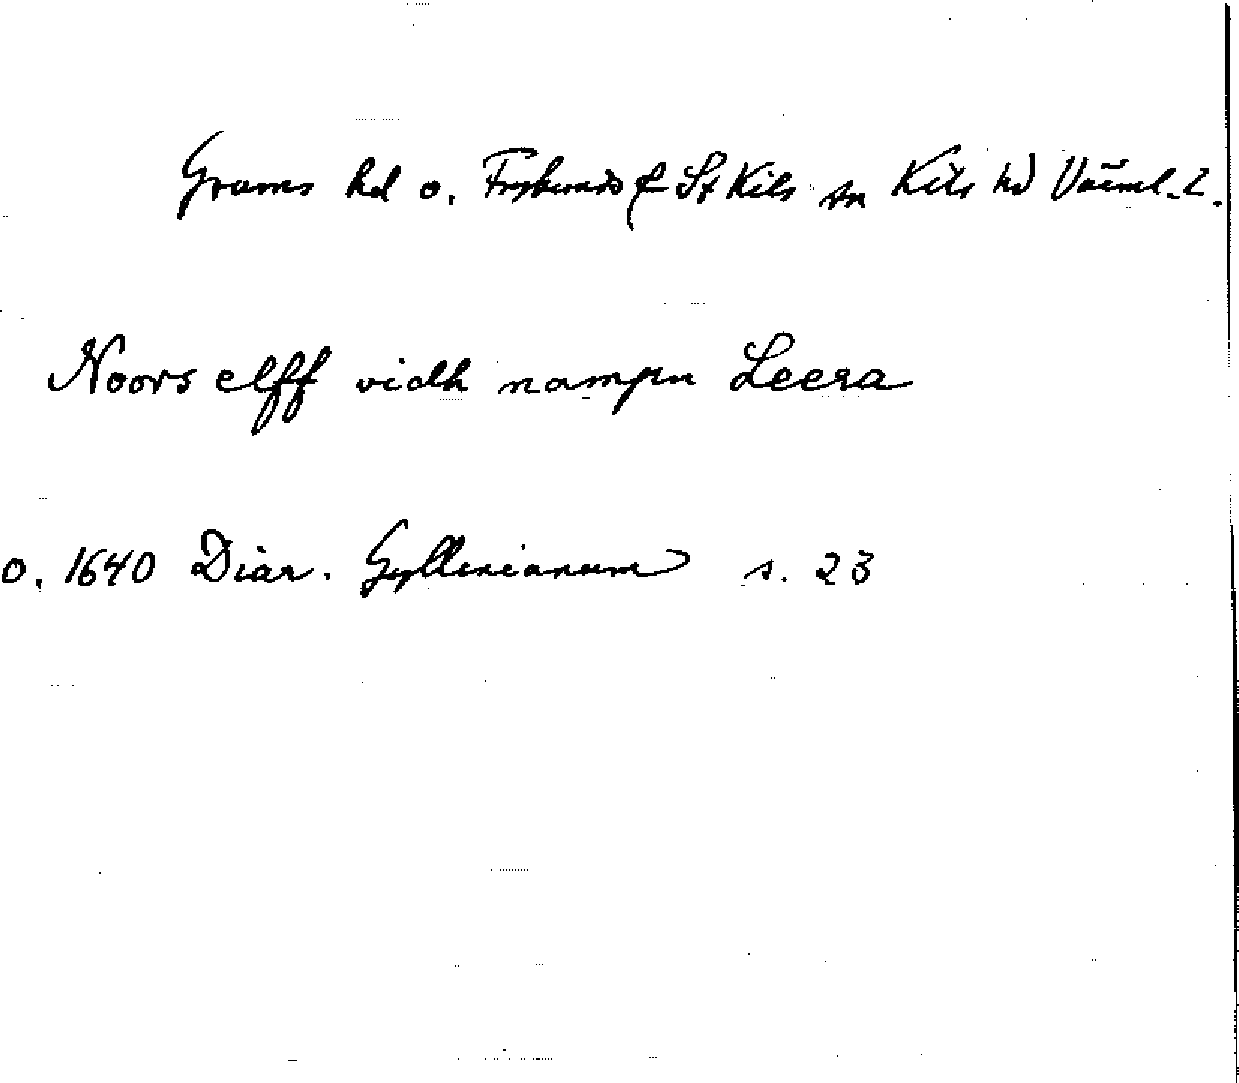 Grams hd o. Frykeruds f St Kils sn Kils hd Värml. L.
Noors elff vidh nampn Leera
o. 1640 Diar. Gyllenianum s. 23